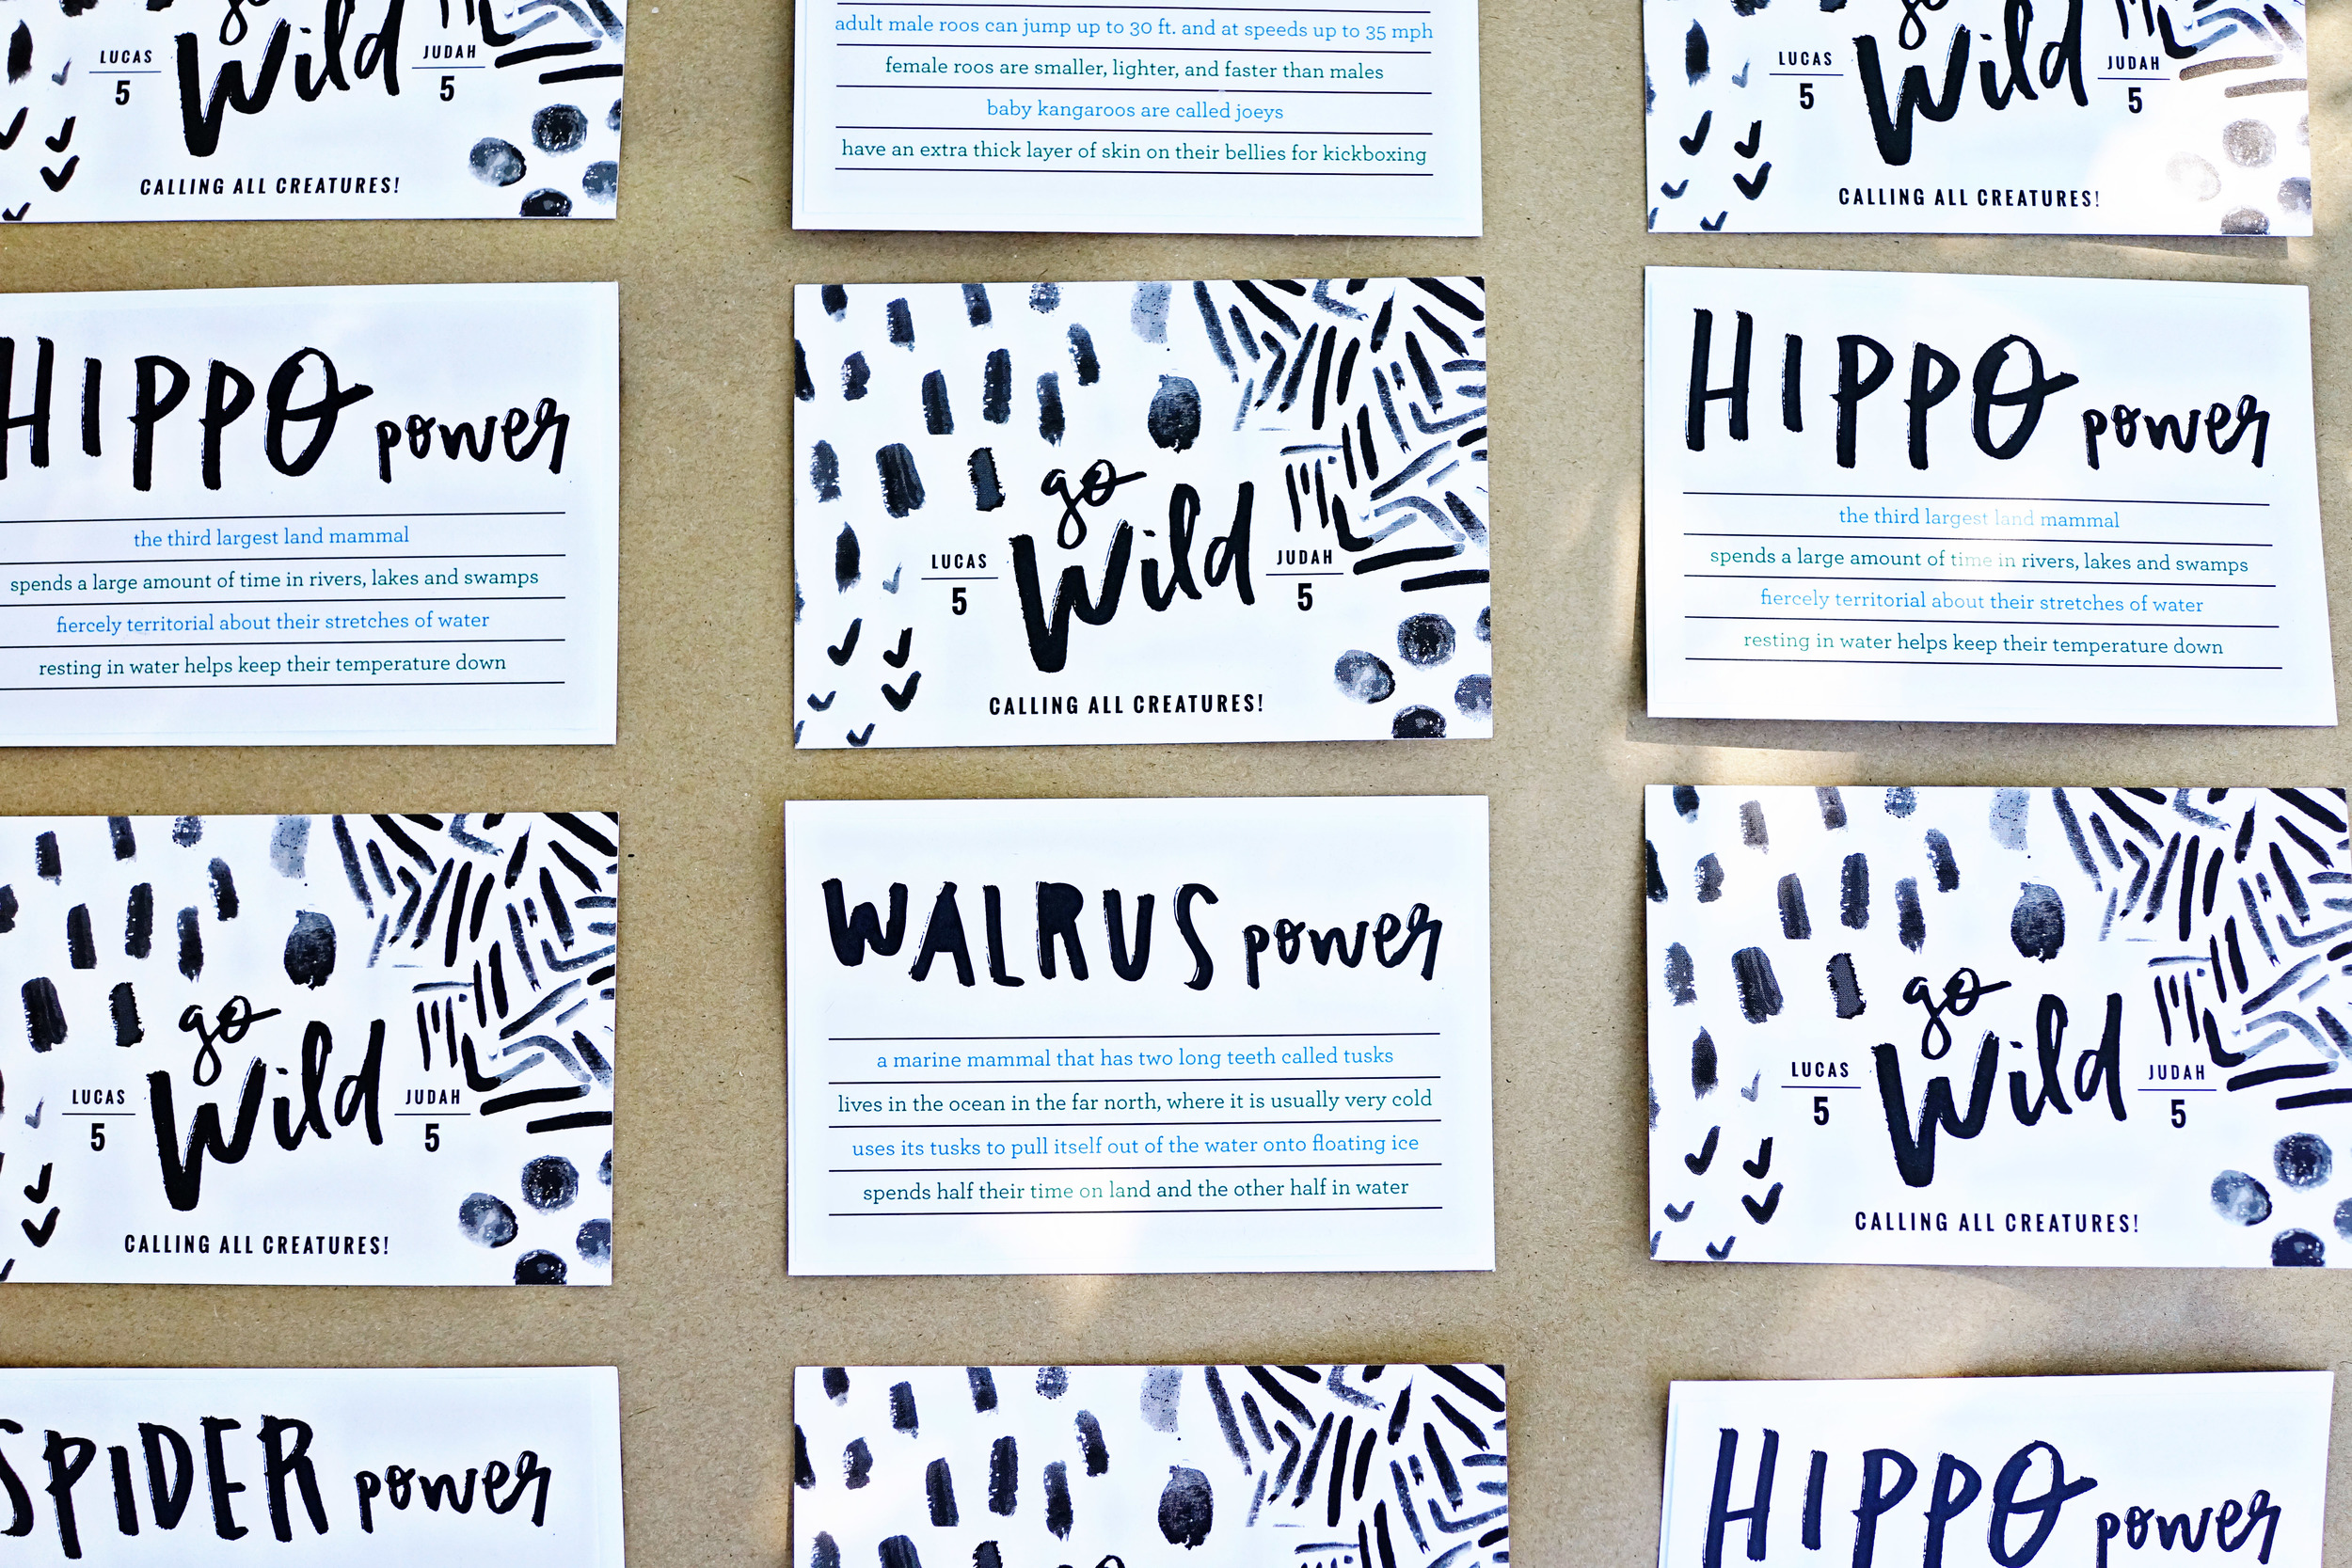 go
LUCAS
5
Wild
JUDAH
5
CALLING ALL CREATURES!
adult male roos can jump up to 30 ft. and at speeds up to 35 mph
female roos are smaller, lighter, and faster than males
baby kangaroos are called joeys
have an extra thick layer of skin on their bellies for kickboxing
go
LUCAS
5
Wild
JUDAH
5
CALLING ALL CREATURES!
HIPPO power
the third largest land mammal
spends a large amount of time in rivers, lakes and swamps
fiercely territorial about their stretches of water
resting in water helps keep their temperature down
go
LUCAS
5
Wild
JUDAH
5
CALLING ALL CREATURES!
HIPPO power
the third largest land mammal
spends a large amount of time in rivers, lakes and swamps
fiercely territorial about their stretches of water
resting in water helps keep their temperature down
go
LUCAS
5
Wild
JUDAH
5
CALLING ALL CREATURES!
WALRUS power
a marine mammal that has two long teeth called tusks
lives in the ocean in the far north, where it is usually very cold
uses its tusks to pull itself out of the water onto floating ice
spends half their time on land and the other half in water
go
LUCAS
5
Wild
JUDAH
5
CALLING ALL CREATURES!
SPIDER power
HIPPO power